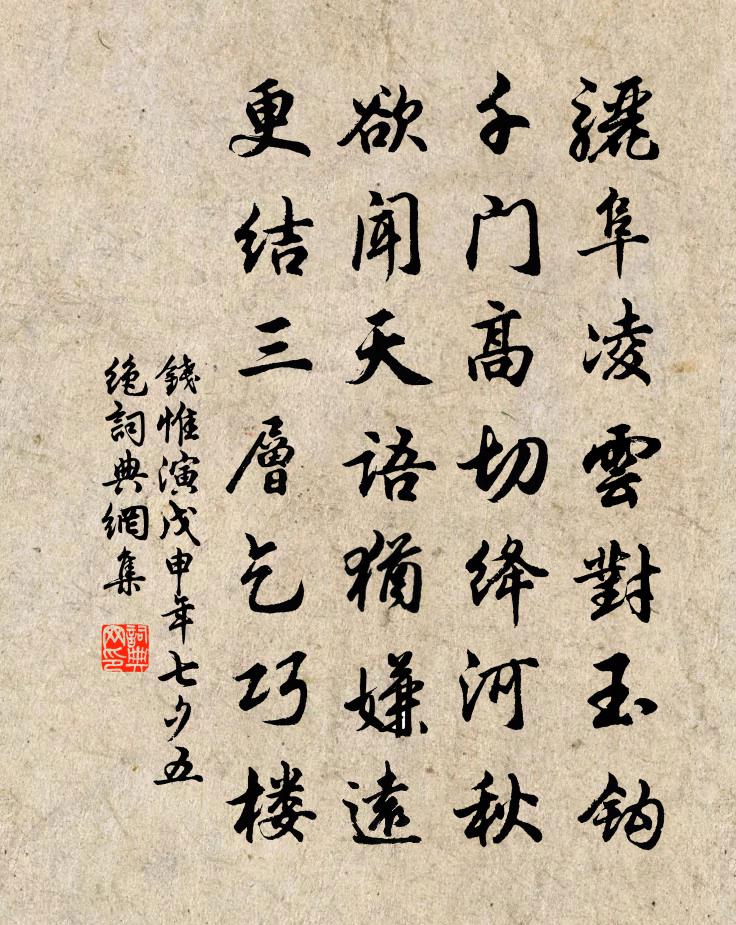 驪阜凌雲對玉鈎
千门高切绛河秋
欲闻天语猶嫌遠
更结三層乞巧楼
錢惟演戊申年七夕五
绝詞典網集
詞典
网印